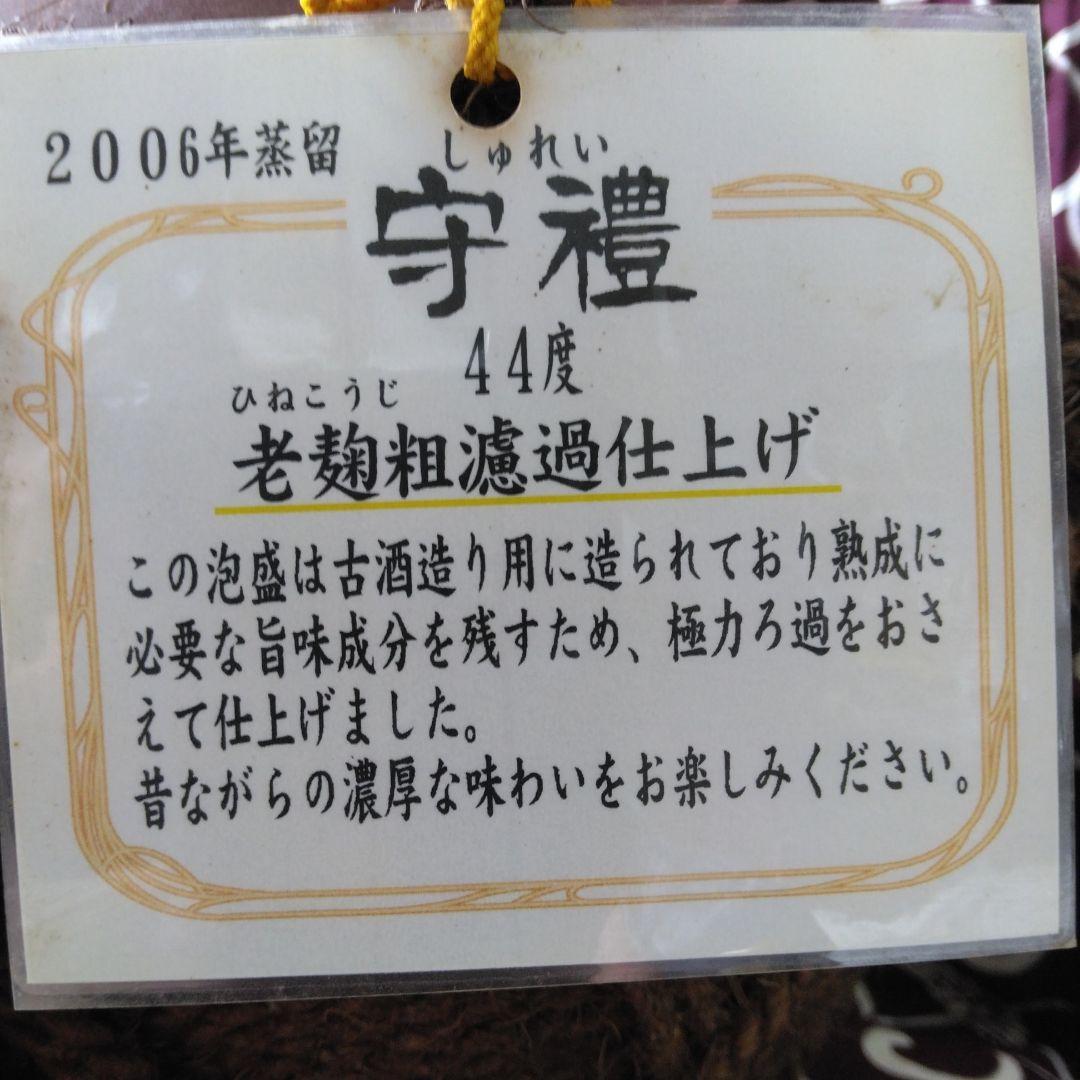 2006年蒸留
しゅれい
守禮
44度
ひねこうじ
老麹粗濾過仕上げ
この泡盛は古酒造り用に造られており熟成に
必要な旨味成分を残すため、極力ろ過をおさ
えて仕上げました。
昔ながらの濃厚な味わいをお楽しみください。